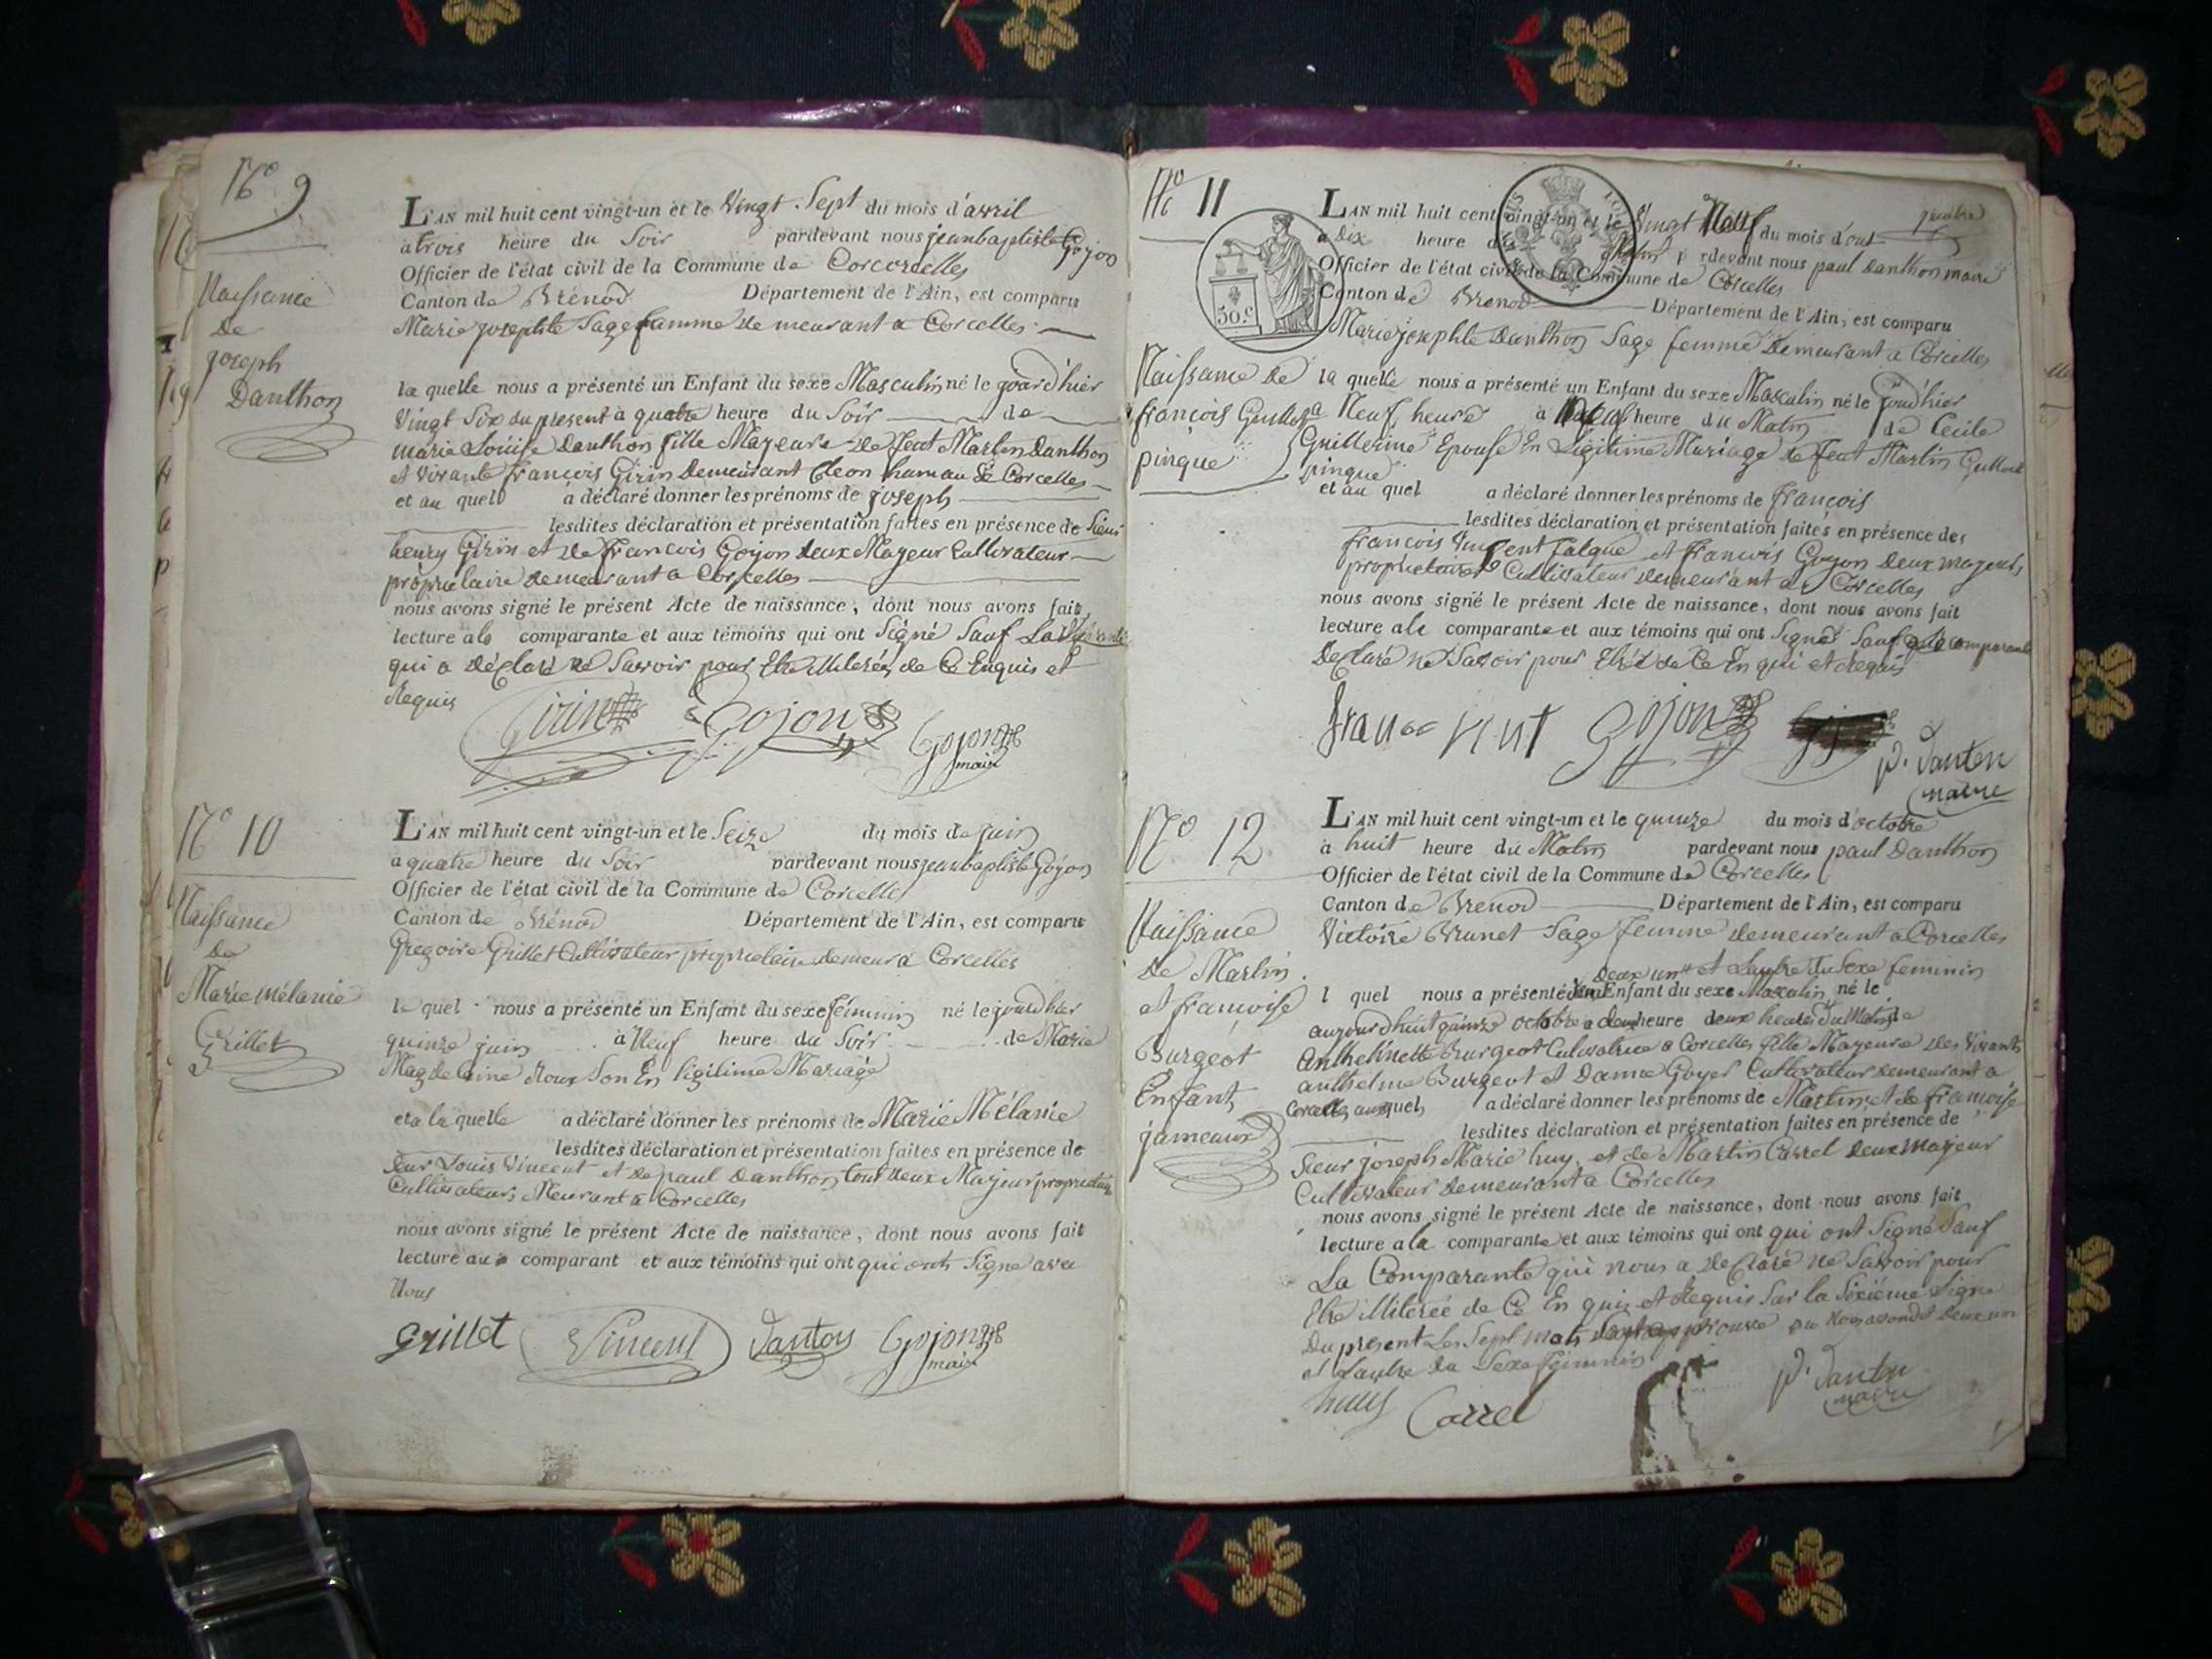 N° 9
Naissance
de
joseph
Danthon
L'AN mil huit cent vingt-un et le Vingt Sept du mois d'avril
a trois heure du Soir pardevant nous jean baptiste Gojon
Officier de l'état civil de la Commune de Corcorcelles
Canton de Brénod Département de l'Ain, est comparu
Marie josephte Sage famme demeurant a Corcelles
la quelle nous a présenté un Enfant du sexe Masculin né le jourd'hier
Vingt Six du present à quatre heure du Soir de
marie Louise Danthon fille Mayeure de feut Martin Danthon
et vivante francois Girin Demeurant Cleon hamau de Corcelles
et au quel a déclaré donner les prénoms de joseph
lesdites déclaration et présentation faites en présence de Sieur
henry Girin et de francois Gojon deux Mayeur Cultivateur
propriétaire demeurant a Corcelles
nous avons signé le présent Acte de naissance, dont nous avons fait
lecture a la comparante et aux témoins qui ont Signé Sauf La
qui a déclaré ne Savoir pour Etre Miterée, de Ce Enquis et
Requis
Girin Gojon Gojon
maire
N° 10
Naissance
de
Marie Mélanie
Grillet
L'AN mil huit cent vingt-un et le Seize du mois de juin
a quatre heure du Soir pardevant nous jean baptiste Gojon
Officier de l'état civil de la Commune de Corcelles
Canton de Brénod Département de l'Ain, est comparu
Gregoire Grillet Cultivateur proprietaire demeura Corcelles
le quel nous a présenté un Enfant du sexe féminin né le jourd'hier
quinze juin à Neuf heure du Soir de Marie
Magdelaine Roux Son En ligitime Mariage
et a la quelle a déclaré donner les prénoms de Marie Mélanie
lesdites déclaration et présentation faites en présence de
Sieur Louis Vincent et de paul Danthon tout deux Majeur propriétaire
Cultivateurs Meurant a Corcelles
nous avons signé le présent Acte de naissance, dont nous avons fait
lecture au comparant et aux témoins qui ont qui ont Signe avec
Nous
Grillet Vincent Danton Gojon
maire
N° 11
50.c
Naissance de
françois Guillot
pinque
L'AN mil huit cent vingt-un et le Vingt Neuf du mois d'out
a Dix heure du Matin pardevant nous paul Danthon maire
Officier de l'état civil de la Commune de Corcelles
Canton de Brenod Département de l'Ain, est comparu
Marie josephte Danthon Sage femme Demeurant a Corcelles
la quelle nous a présenté un Enfant du sexe Masculin né le jourd'hier
a Neuf heure à heure du Matin de Cecile
Guillerme Epouse En Ligitime Mariage de feut Martin Guillot
pinque
et au quel a déclaré donner les prénoms de françois
lesdites déclaration et présentation faites en présence des
francois Vincent falque et francois Gojon deux mayeurs
propriétaires Cultivateur demeurant a Corcelles
nous avons signé le présent Acte de naissance, dont nous avons fait
lecture a la comparante et aux témoins qui ont Signés Sauf la comparante
Declaré ne Savoir pour de Ce En qui et Requis
Gojon
P. Danten
maire
N° 12
Naissance
de Martin
et françoise
Burgeot
Enfant
jameaux
L'AN mil huit cent vingt-un et le quinze du mois d'octobre
à huit heure du Matin pardevant nous paul Danthon
Officier de l'état civil de la Commune de Corcelles
Canton de Brenod Département de l'Ain, est comparu
Victoire Brunet Sage femme demeurant a Corcelles
deux un et Lautre du Sexe feminin
l quel nous a présenté Enfant du sexe Masculin né le
aujourd'hui quinze octobre a heure deux heures du Matin de
Anthelmette Burgeot Cultivatrice a Corcelles fille Mayeure des Vivants
anthelme Burgeot et Danne Goyet Cultivateur demeurant a
Corcelles auxquels a déclaré donner les prénoms de Martin et de françoise
lesdites déclaration et présentation faites en présence de
Sieur joseph Marie huy et de Martin Carrel deux majeur
Cultivateur demeurant a Corcelles
nous avons signé le présent Acte de naissance, dont nous avons fait
lecture a la comparante et aux témoins qui ont qui ont Signé Sauf
La Comparante qui nous a déclaré ne Savoir pour
Etre Miterée de Ce En quis et Requis Sur la Sixième Ligne
Du present Les Sept mots approuve deux un
et Lautre du Sexe feminin
Carrel
P. Danten
maire